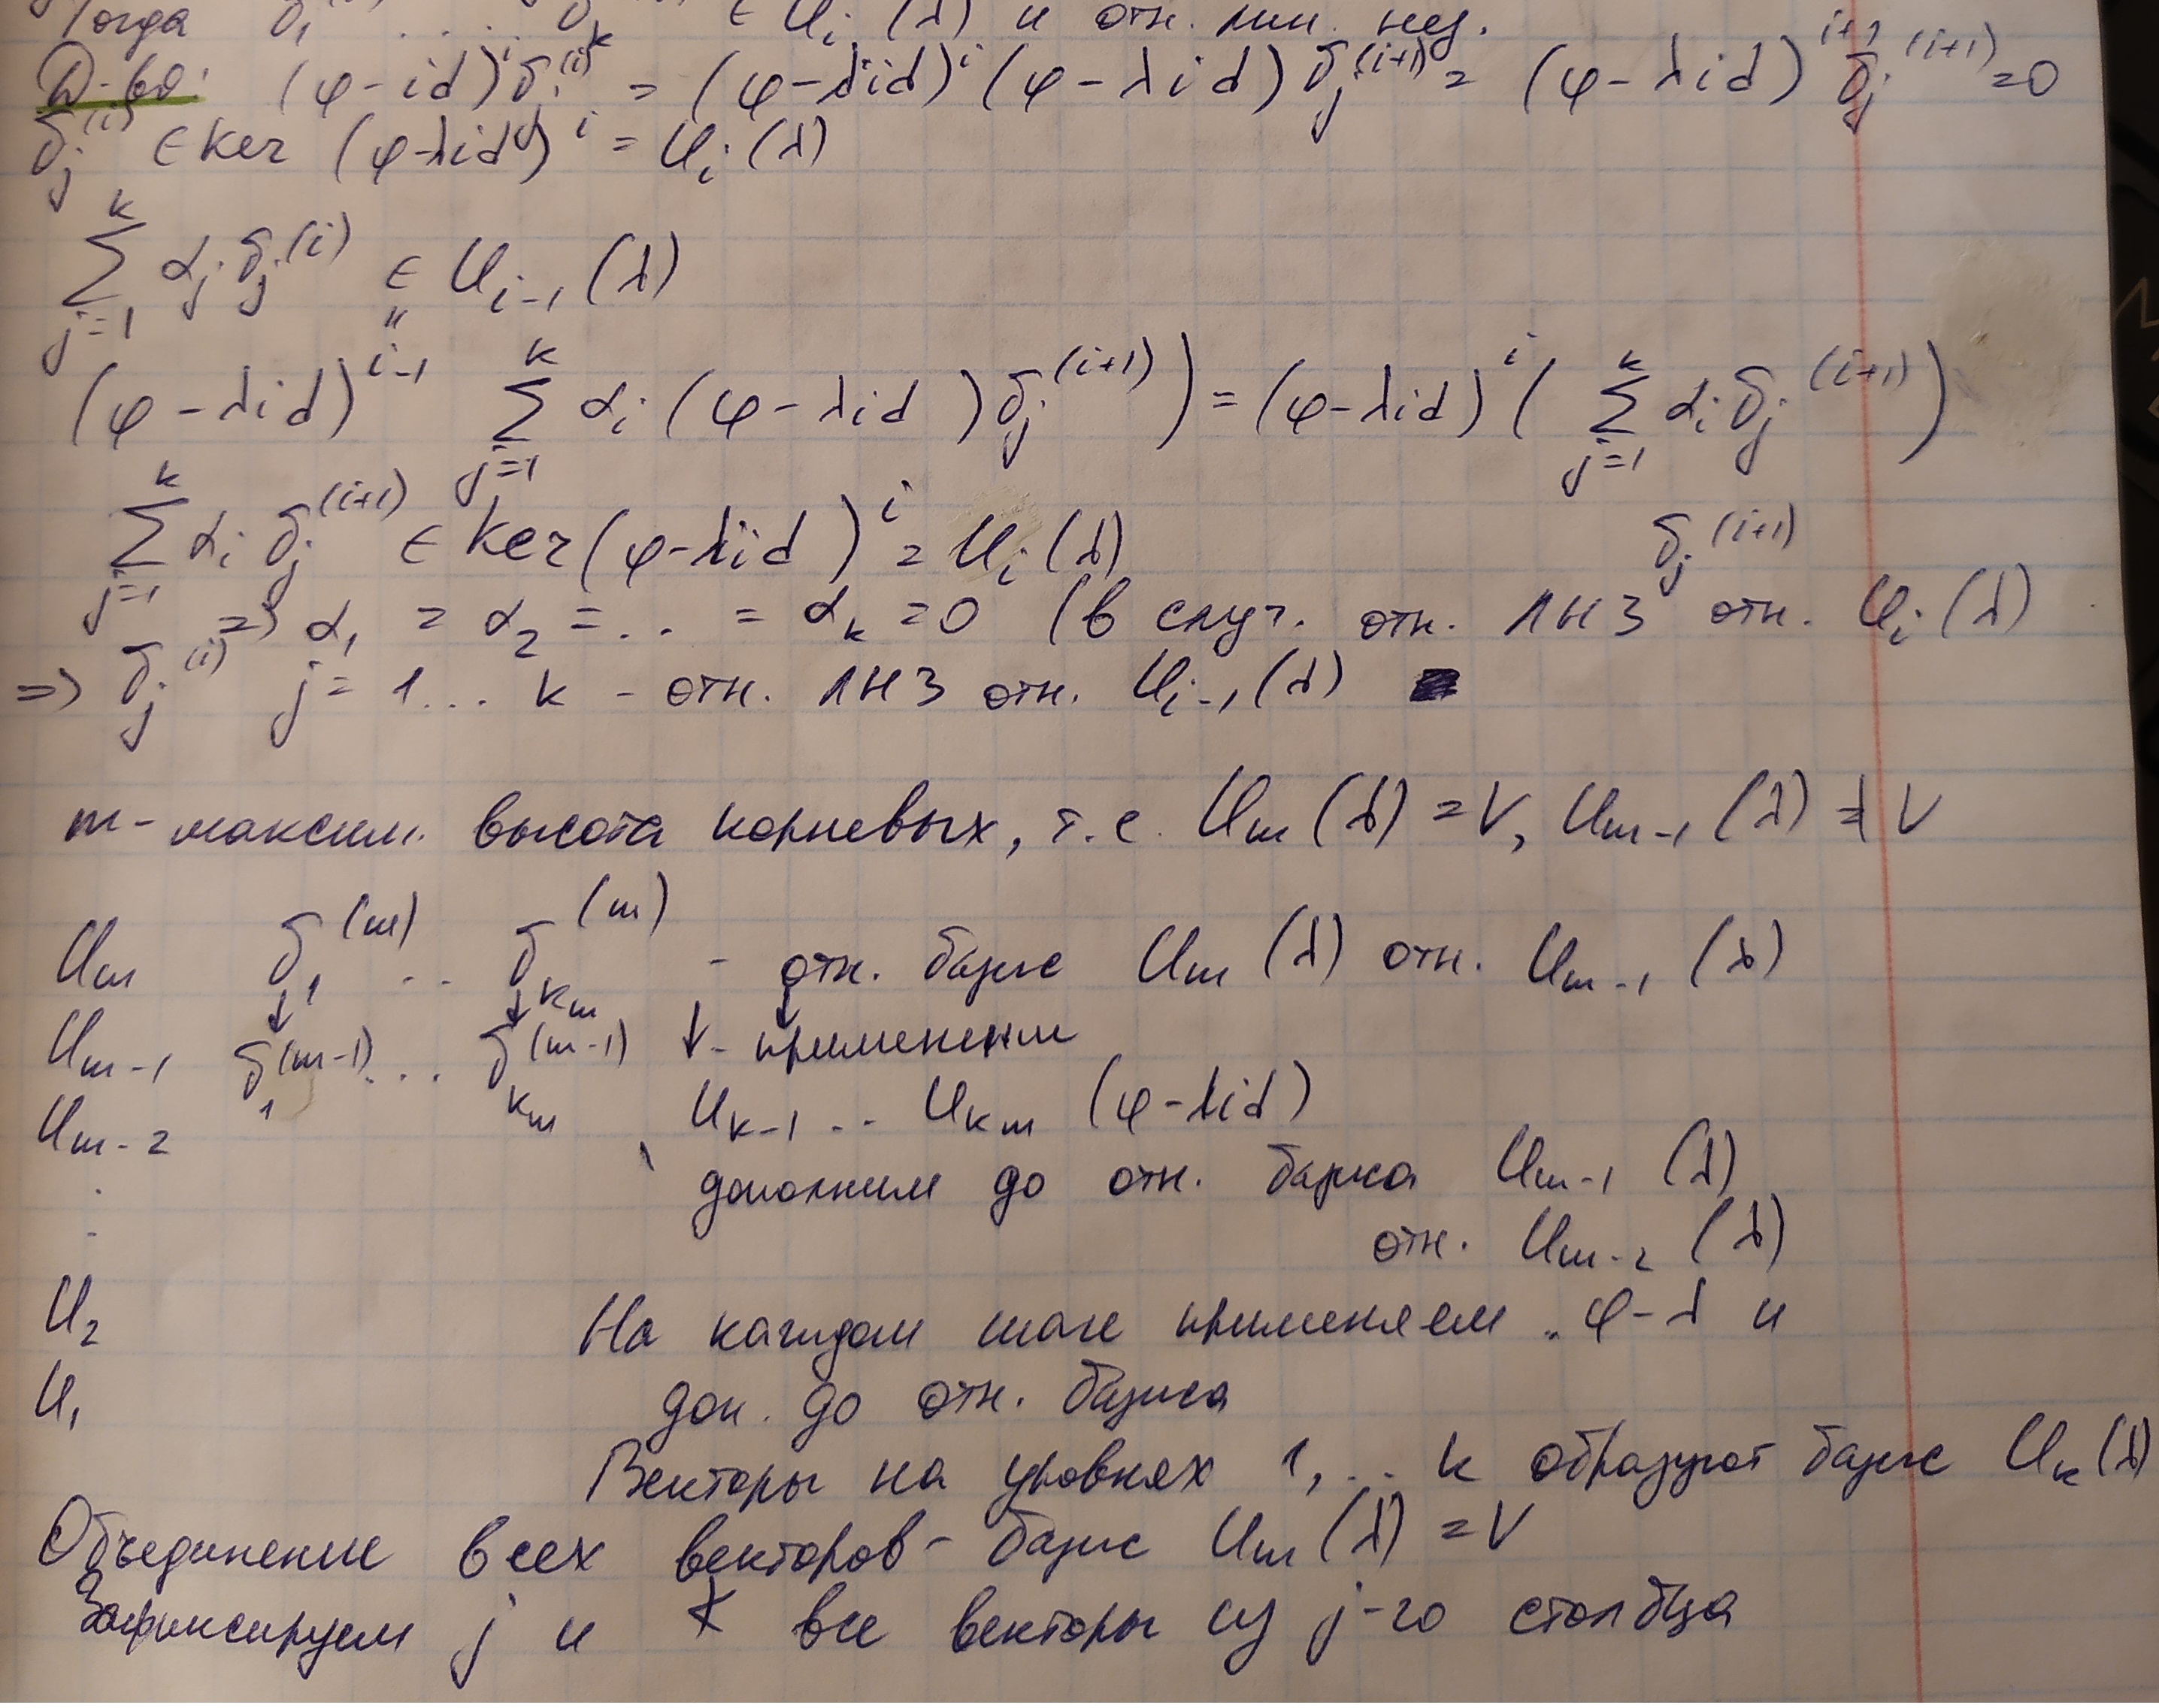 Тогда δ₁ ... δₖ ∈ Uᵢ(λ) и отн. лин. нез.
Д-во: (φ-id)ⁱ δⱼ⁽ⁱ⁾ = (φ-λid)ⁱ (φ-λid) δⱼ⁽ⁱ⁺¹⁾ = (φ-λid)ⁱ⁺¹ δⱼ⁽ⁱ⁺¹⁾ = 0
δⱼ⁽ⁱ⁾ ∈ ker (φ-λid)ⁱ = Uᵢ(λ)
∑ⱼ₌₁ᵏ αⱼ δⱼ⁽ⁱ⁾ ∈ Uᵢ₋₁(λ)
"
(φ-λid)ⁱ⁻¹ ∑ⱼ₌₁ᵏ αᵢ (φ-λid) δⱼ⁽ⁱ⁺¹⁾) = (φ-λid)ⁱ (∑ⱼ₌₁ᵏ αᵢ δⱼ⁽ⁱ⁺¹⁾)
∑ⱼ₌₁ᵏ αᵢ δⱼ⁽ⁱ⁺¹⁾ ∈ ker (φ-λid)ⁱ = Uᵢ(λ) δⱼ⁽ⁱ⁺¹⁾
=> α₁ = α₂ = .. = αₖ = 0 (в случ. отн. ЛНЗ отн. Uᵢ(λ)
=> δⱼ⁽ⁱ⁾ j = 1... k - отн. ЛНЗ отн. Uᵢ₋₁(λ)
m - максим. высота корневых, т.е. Uₘ(λ) = V, Uₘ₋₁(λ) ≠ V
Uₘ δ₁⁽ᵐ⁾ .. δₖₘ⁽ᵐ⁾ - отн. базис Uₘ(λ) отн. Uₘ₋₁(λ)
↓ ↓ ↓
Uₘ₋₁ δ₁⁽ᵐ⁻¹⁾ ... δₖₘ⁽ᵐ⁻¹⁾ ↓ - применения
Uₘ₋₂ Uₖ₋₁ .. Uₖₘ (φ-λid)
дополним до отн. базиса Uₘ₋₁(λ)
отн. Uₘ₋₂(λ)
U₂ На каждом шаге применяем φ-λ и
U₁ доп. до отн. базиса
Векторы на уровнях 1, ... k образуют базис Uₖ(λ)
Объединение всех векторов - базис Uₘ(λ) = V
Зафиксируем j и все векторы из j-го столбца